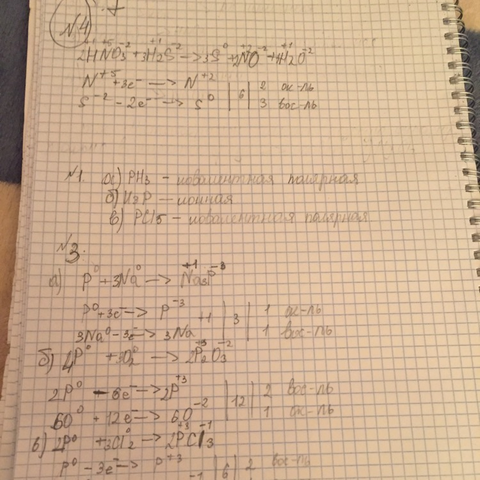 №4
2HN⁺⁵O₃⁻²+3H₂⁺¹S⁻²—>3S⁰+2N⁺²O⁻²+4H₂⁺¹O⁻²
N⁺⁵+3e⁻ —> N⁺² | 6 | 2 ок-ль
S⁻²-2e⁻ —> S⁰ | | 3 вос-ль
№1. а) PH₃ - ковалентная полярная
б) — ионная
в) PCl₅ - ковалентная полярная
№3.
а) P⁰+3Na⁰ —> Na₃⁺¹P⁻³
P⁰+3e⁻—> P⁻³ | 3 | 1 ок-ль
3Na⁰-3e⁻—> 3Na⁺¹ | | 1 вос-ль
б) 4P⁰ +3O₂⁰ —> 2P₂⁺³O₃⁻²
2P⁰ -6e⁻—>2P⁺³ | 12 | 2 вос-ль
6O⁰ +12e⁻—> 6O⁻² | | 1 ок-ль
в) 2P⁰ +3Cl₂⁰ —> 2P⁺³Cl₃⁻¹
P⁰ -3e⁻—> P⁺³ | 6 | 2 вос-ль
-1